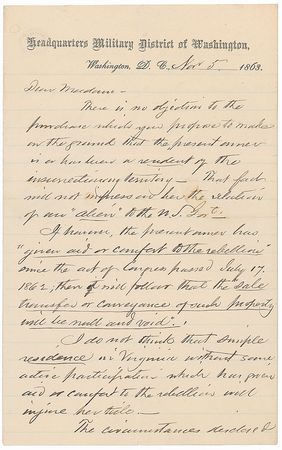 Headquarters Military District of Washington,
Washington, D. C. Nov 5 1863.
Dear Madam -
There is no objection to the
purchase which you propose to make
on the ground that the present owner
is or has been a resident of the
insurrectionary territory — That fact
will not impress on her the relation
of an "alien" to the U.S. Govt.
If however, the present owner has
"given aid or comfort to the rebellion"
since the act of Congress passed July 17.
1862, then it will follow that the sale
transfer or conveyance of such property
will be null and void".
I do not think that simple
residence in Virginia without some
active participation which has given
aid or comfort to the rebellion will
injure her title. —
The circumstances disclosed